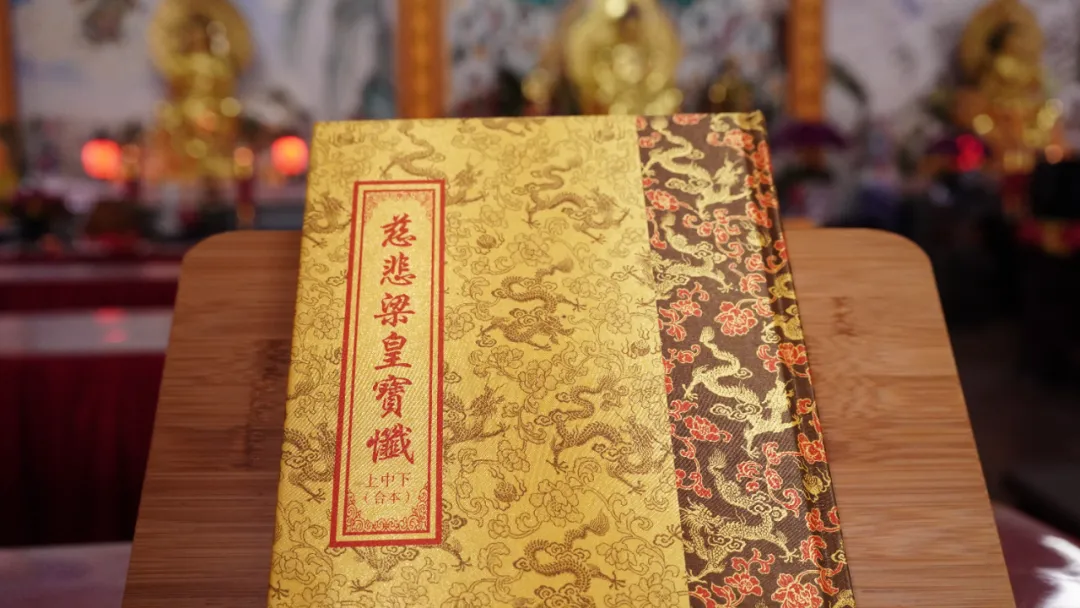 慈悲梁皇寶懺
上中下
（合本）